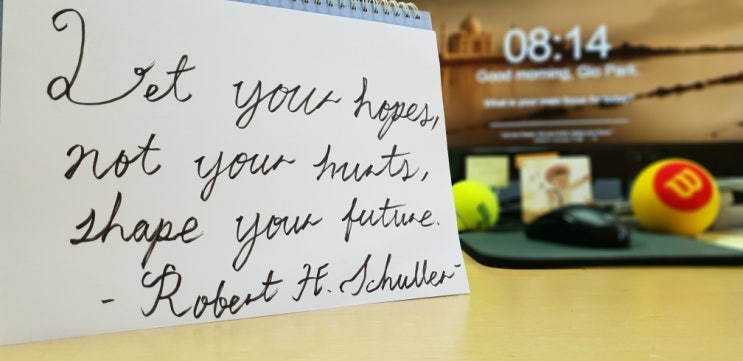 Let your hopes,
not your hurts,
shape your future.
- Robert H. Schuller -
08:14
Good morning, Gio Park.
What is your main focus for today?
W